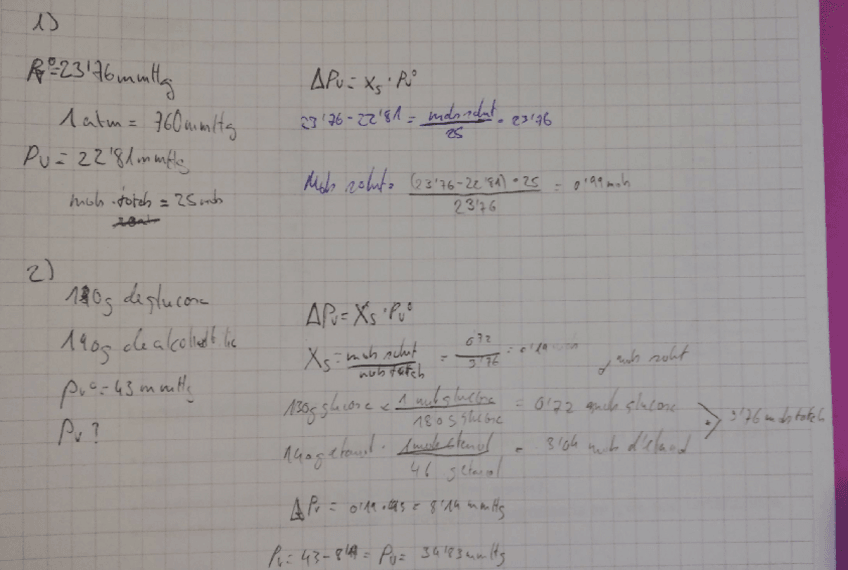 1)
Pv°=23'76mmHg
1 atm = 760mmHg
Pv = 22'81mmHg
mols totals = 25 mols
ΔPv = Xs · Pv°
23'76-22'81 = mols solut / 25 · 23'76
Mols solut = (23'76-22'81) · 25 / 23'76 = 0'99 mols
2)
130g de glucosa
140g de alcohol
Pv° = 43 mmHg
Pv ?
ΔPv = Xs · Pv°
Xs = mols solut / mols totals = 0'72 / 3'76 = 0'19
mols solut
130g glucosa × 1 mol glucosa / 180g glucosa = 0'72 mols glucosa
3'76 mols totals
140g etanol · 1 mol etanol / 46 g etanol = 3'04 mols d'etanol
ΔPv = 0'19 · 43 = 8'14 mmHg
Pv = 43 - = Pv = 34'83mmHg